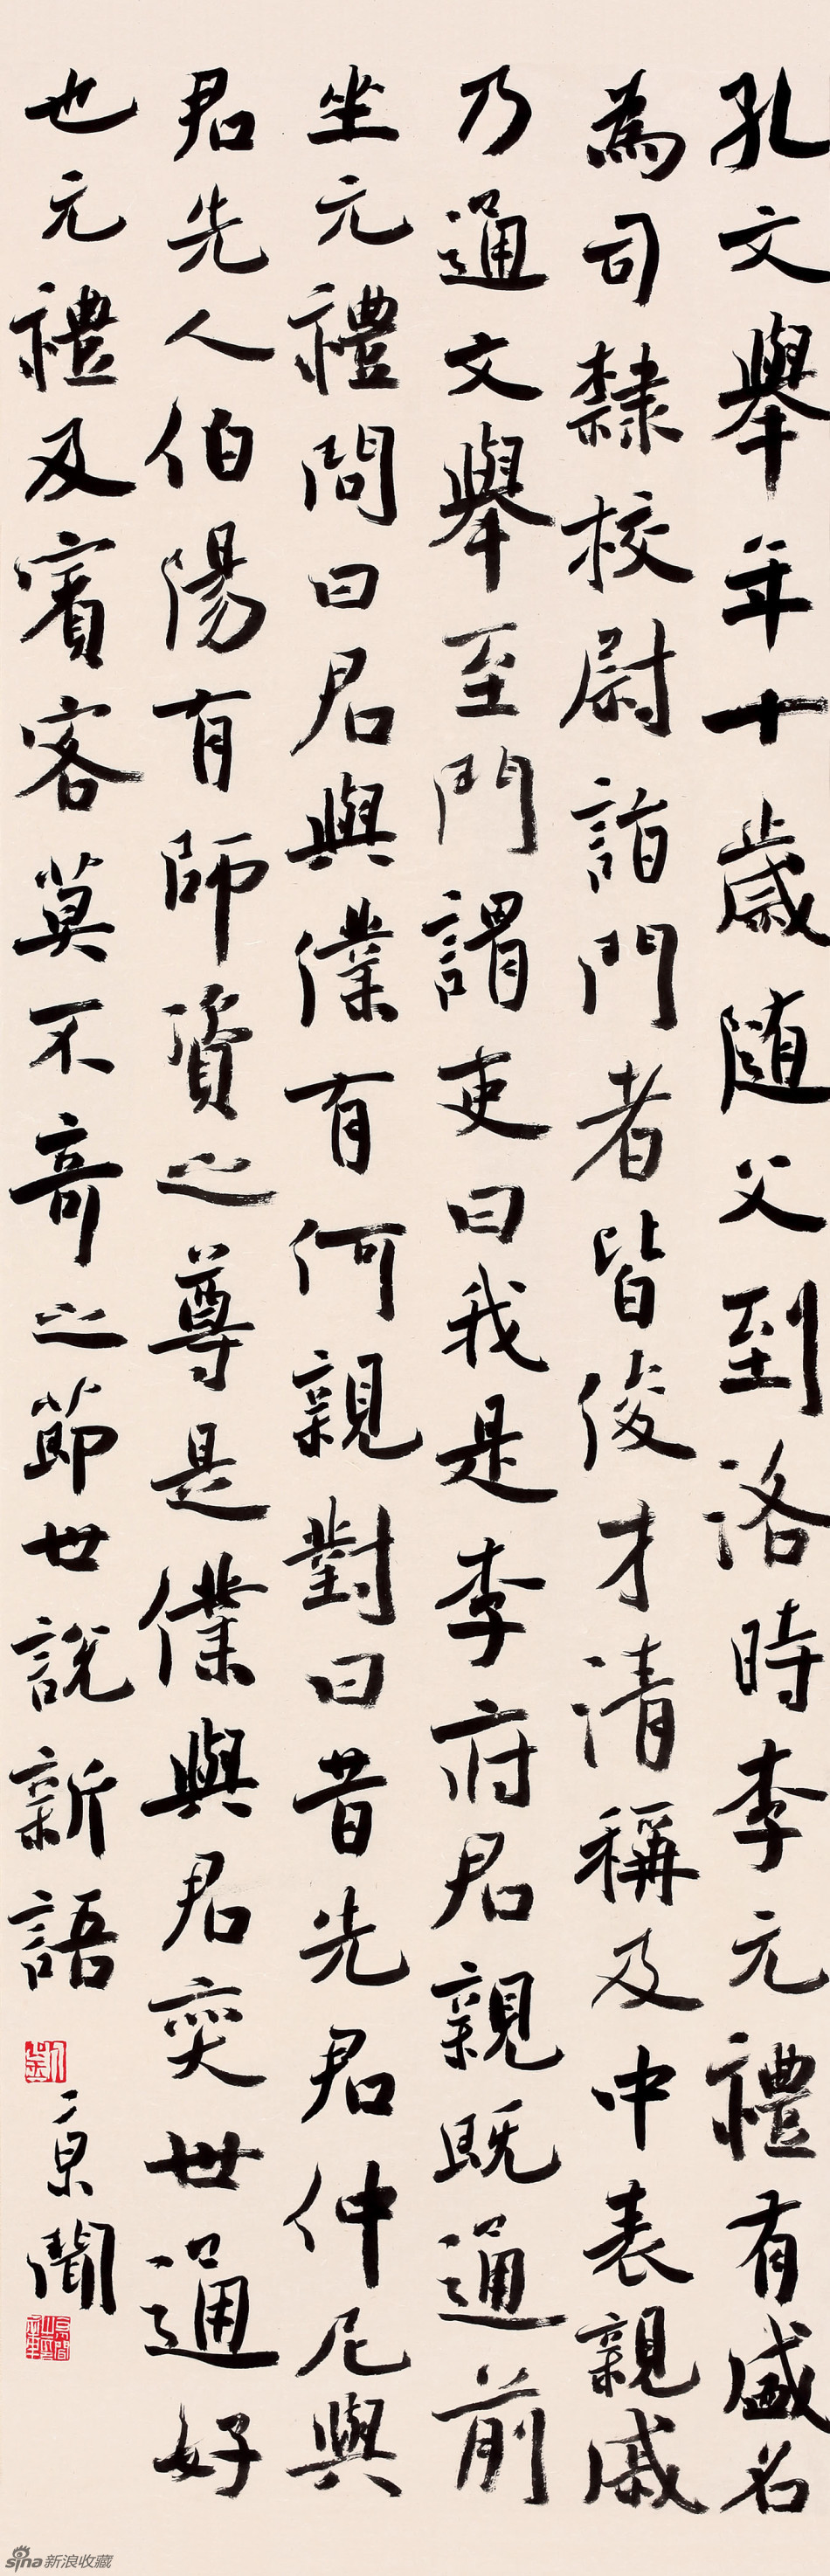 孔文舉年十歲随父到洛時李元禮有盛名
為司隸校尉詣門者皆俊才清稱及中表親戚
乃通文舉至門謂吏曰我是李府君親既通前
坐元禮問曰君與僕有何親對曰昔先君仲尼與
君先人伯陽有師資之尊是僕與君奕世通好
也元禮及賓客莫不奇之節世說新語
景聞
sina新浪收藏